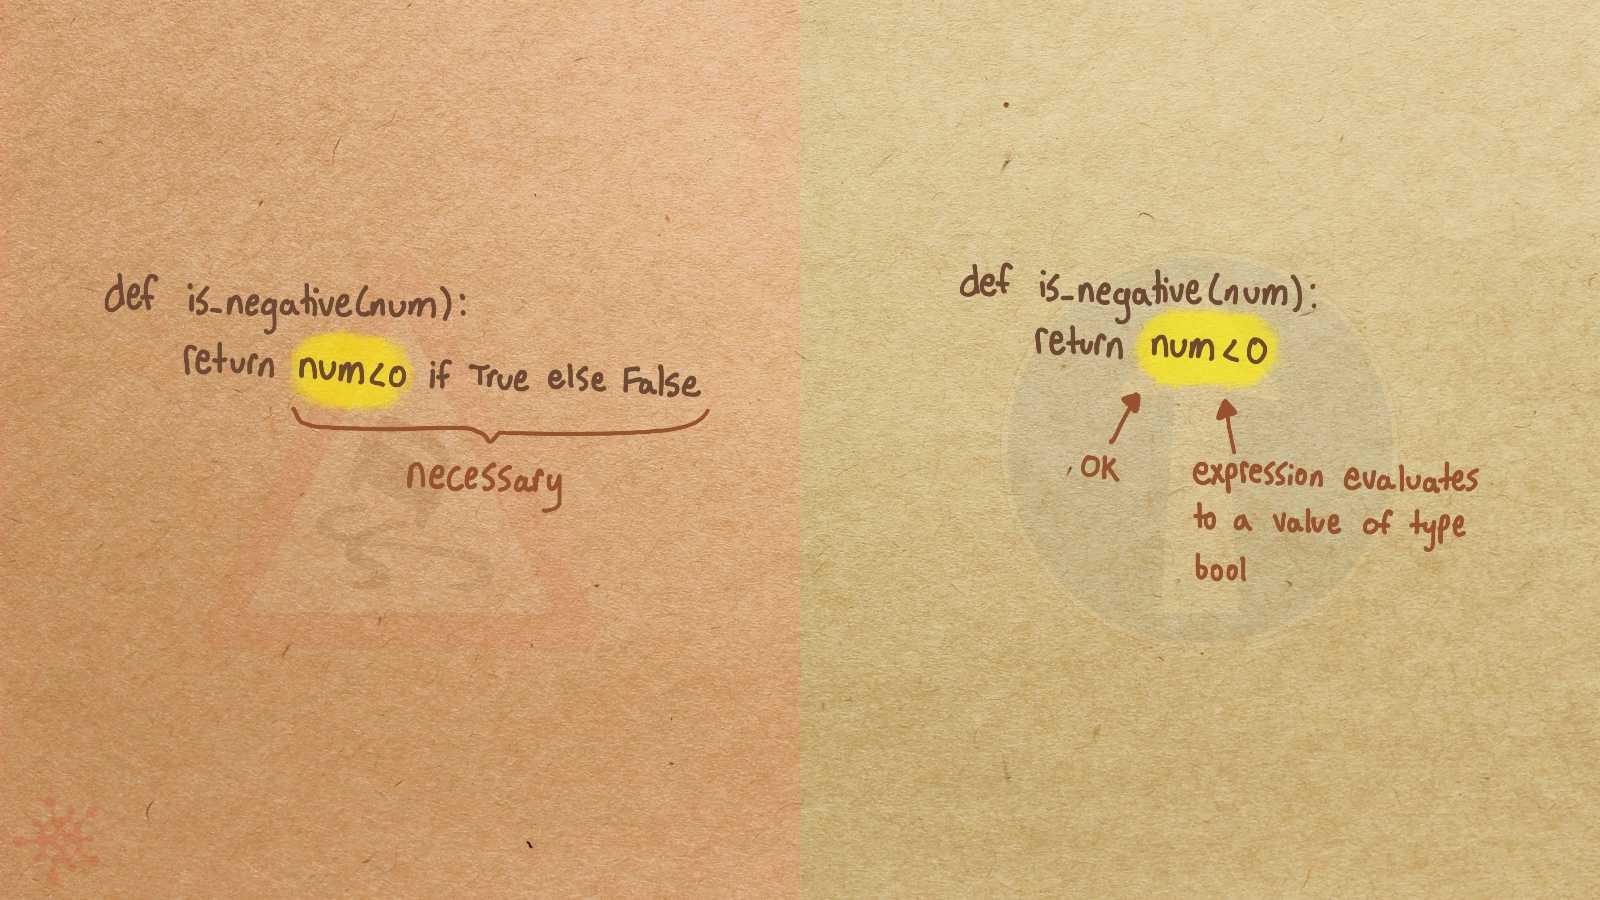 def is_negative(num):
return num<0 if True else False
necessary
def is_negative(num):
return num<0
OK
expression evaluates
to a value of type
bool